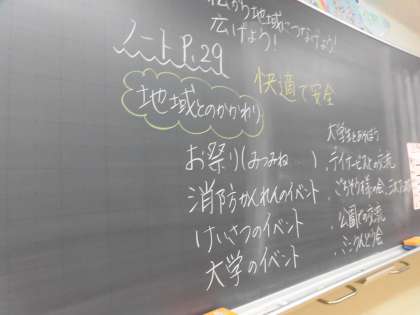 私から地域につなげよう!
広げよう!
ノートP.29
快適で安全
地域とのかかわり
お祭り(みつみね )
消防かんれんのイベント
けいさつのイベント
大学のイベント
大学生とあそぼう
・デイサービスとの交流
・ごちそう様の会
・公園での交流
・ミニうんどう会